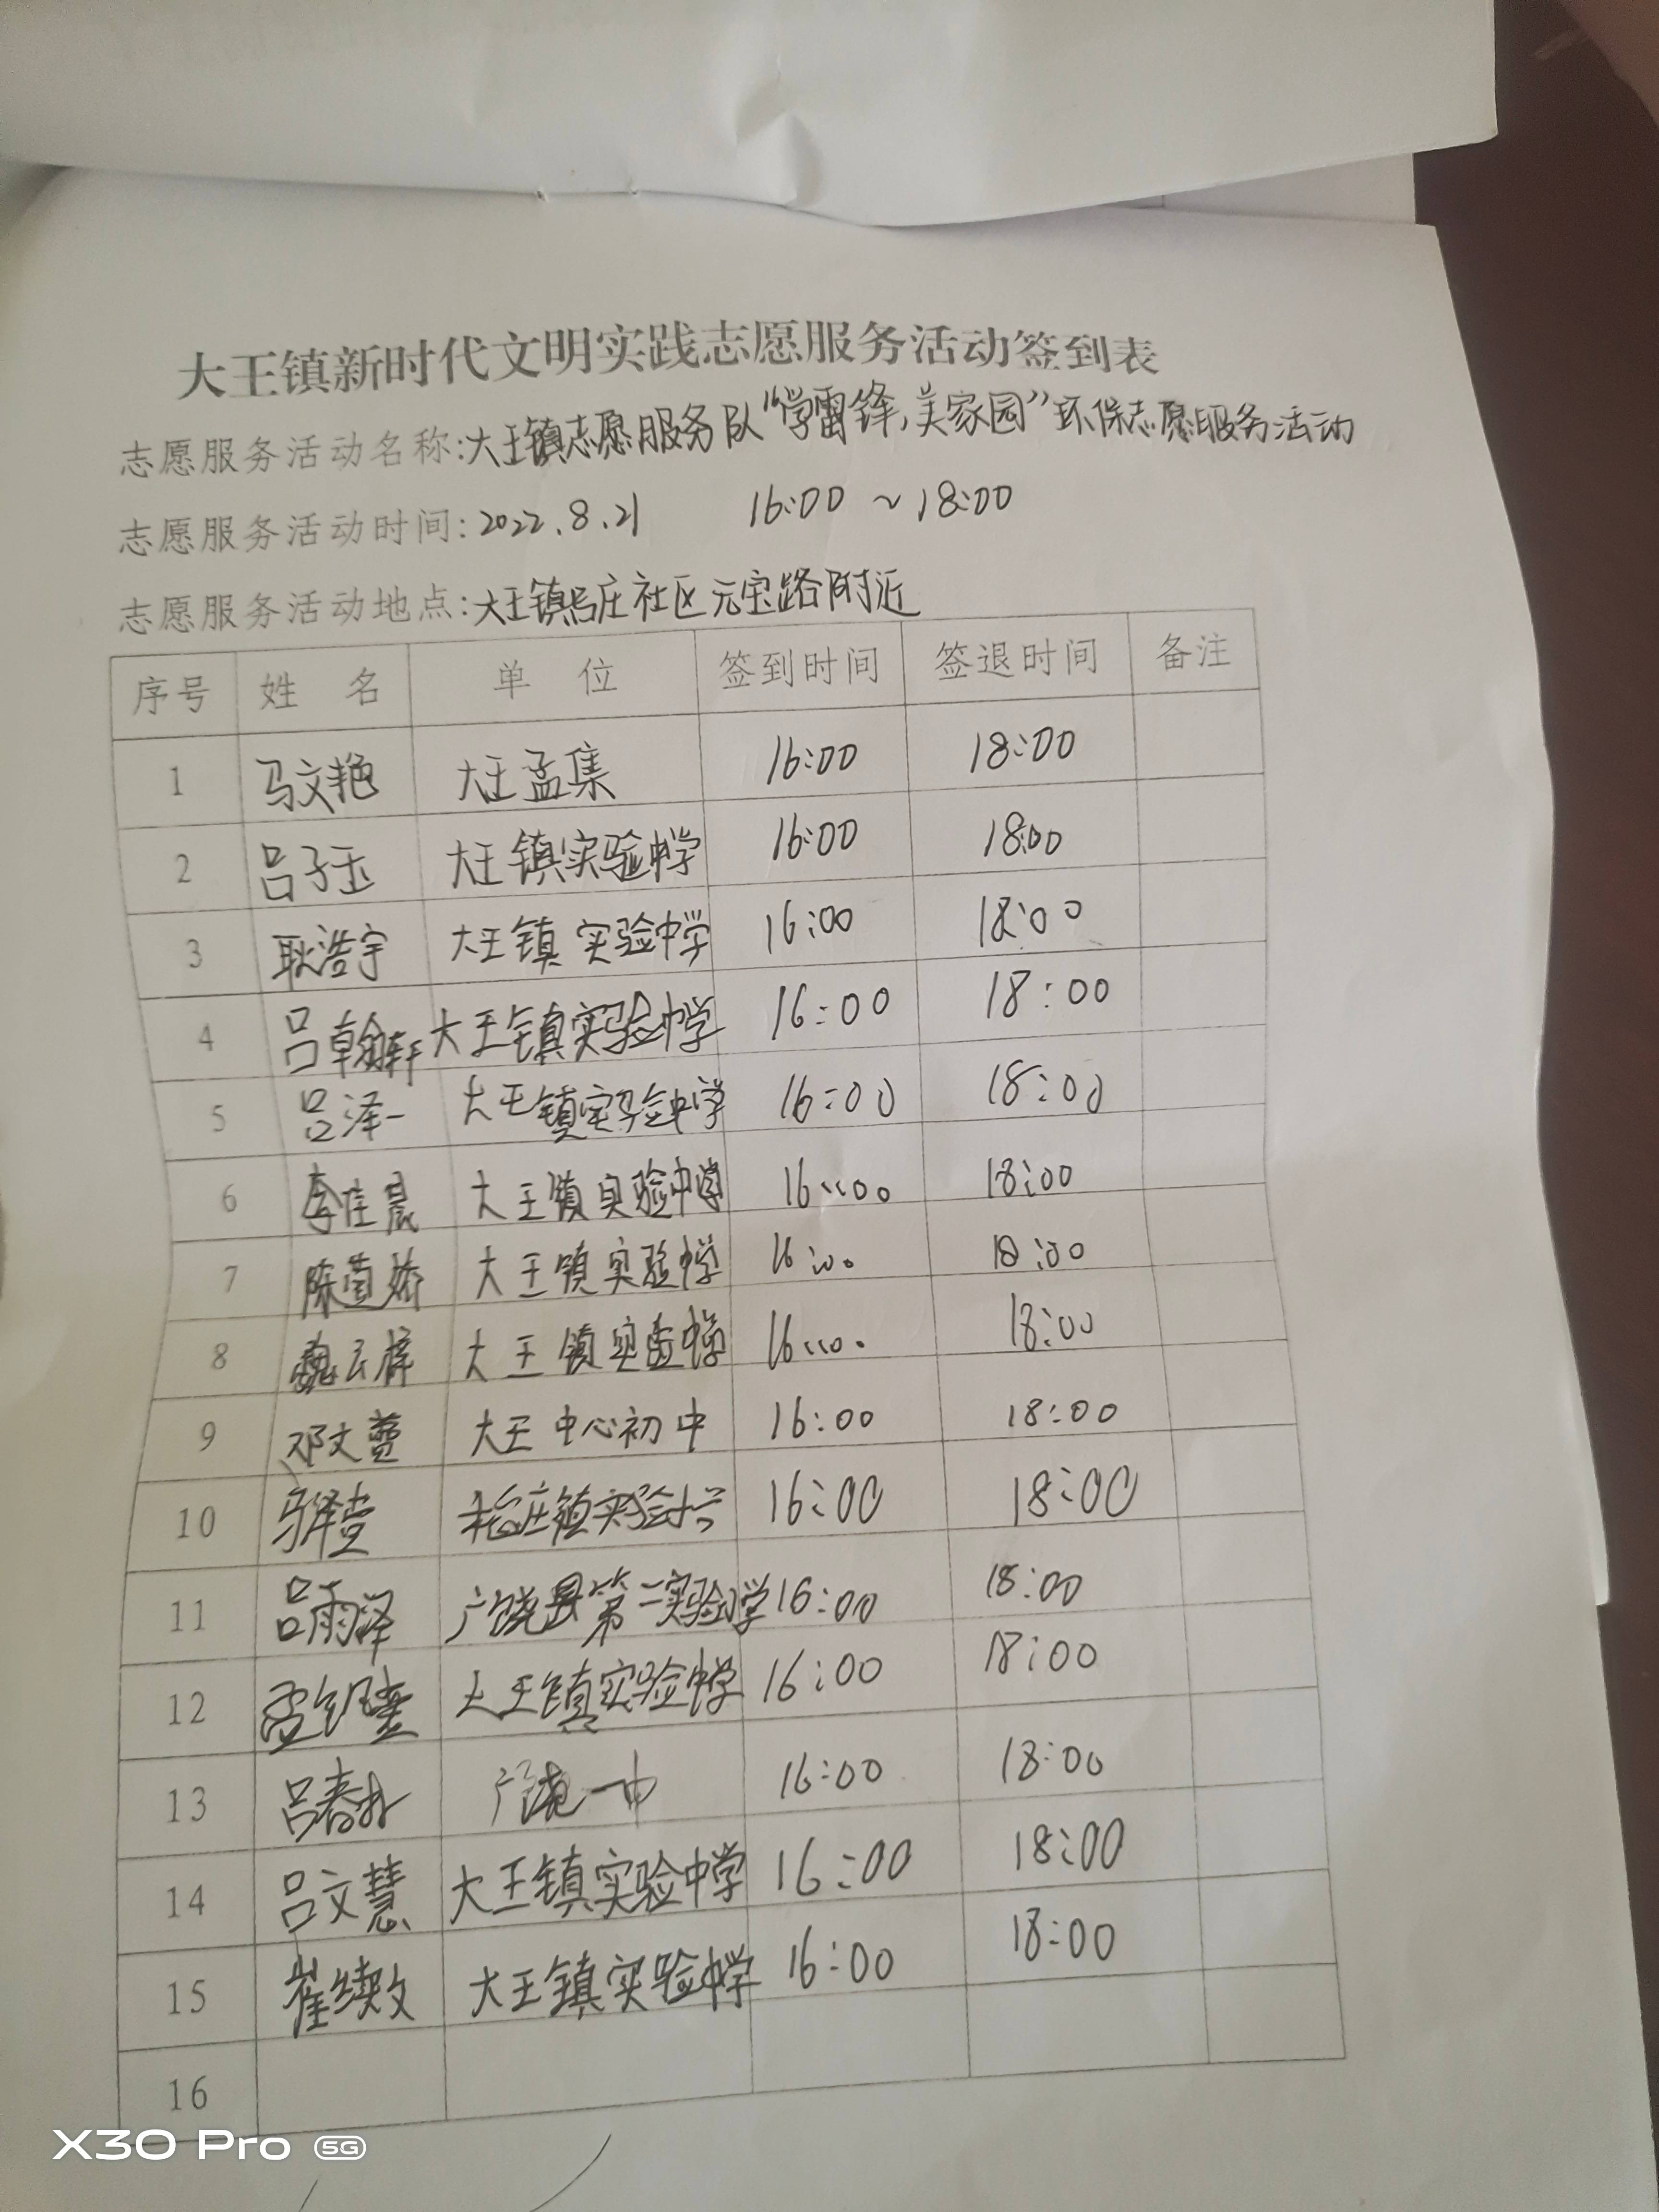 大王镇新时代文明实践志愿服务活动签到表
志愿服务活动名称:大王镇志愿服务队“学雷锋,美家园”环保志愿服务活动
志愿服务活动时间:2022.8.21 16:00~18:00
志愿服务活动地点:大王镇吕庄社区元宝路附近
序号 姓 名 单 位 签到时间 签退时间 备注
1 马文艳 大王孟集 16:00 18:00
2 吕子玉 大王镇实验中学 16:00 18:00
3 耿浩宇 大王镇实验中学 16:00 18:00
4 吕翰轩 大王镇实验中学 16:00 18:00
5 吕泽一 大王镇实验中学 16:00 18:00
6 李佳晨 大王镇实验中学 16:00 18:00
7 大王镇实验中学 16:00 18:00
8 大王镇实验中学 16:00 18:00
9 邓文萱 大王中心初中 16:00 18:00
10 16:00 18:00
11 吕雨泽 广饶县第一实验小学 16:00 18:00
12 大王镇实验中学 16:00 18:00
13 广饶一中 16:00 18:00
14 吕文慧 大王镇实验中学 16:00 18:00
15 崔续文 大王镇实验中学 16:00 18:00
16
X30 Pro 5G